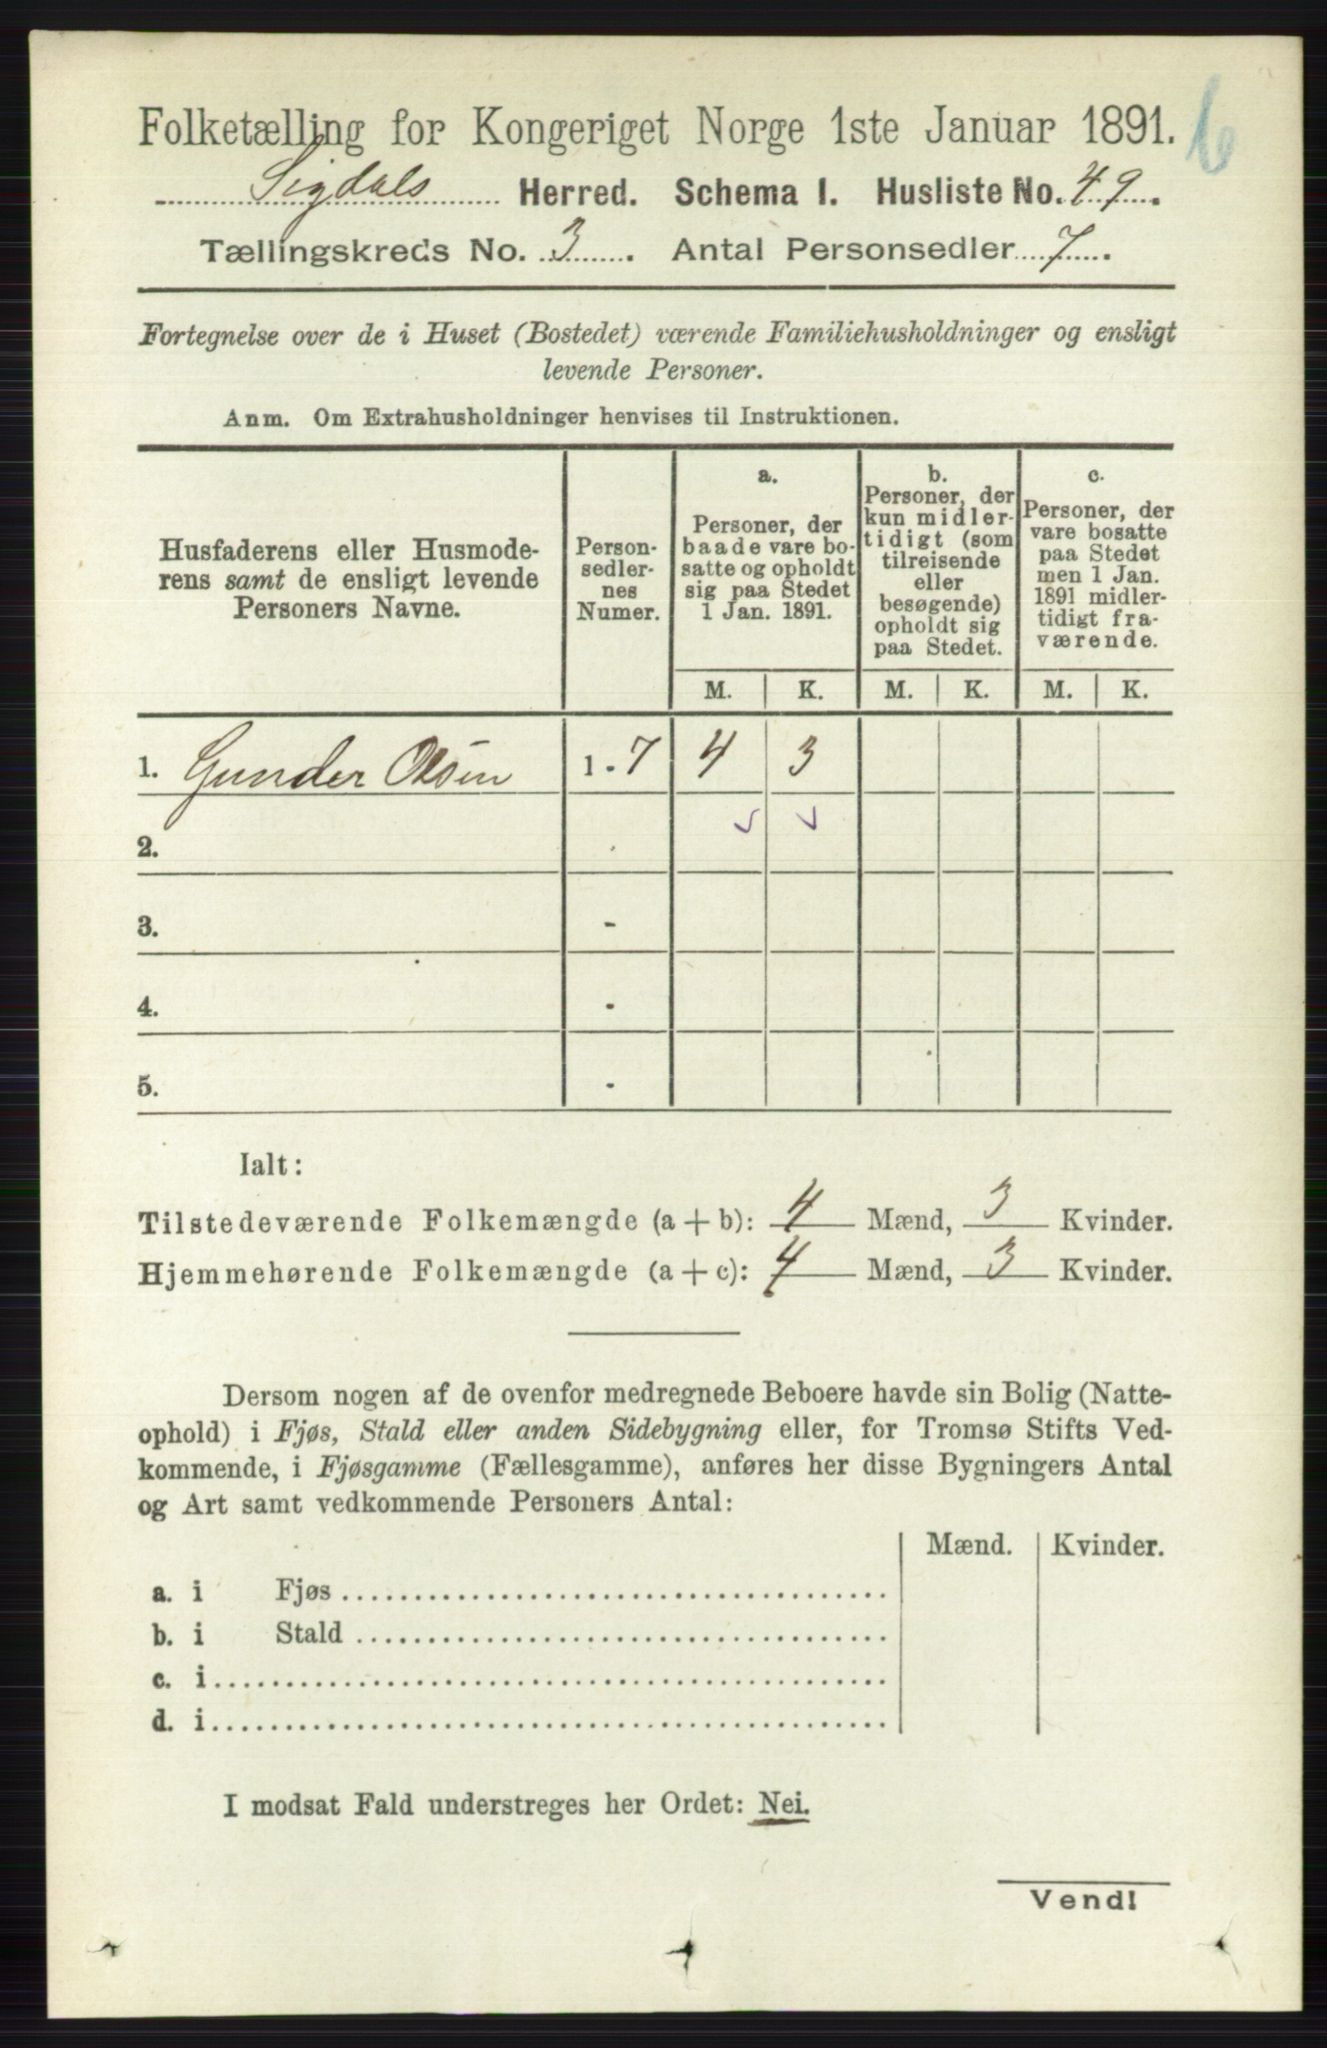 Folketælling for Kongeriget Norge 1ste Januar 1891.
6
Sigdals Herred. Schema I. Husliste No. 49.
Tællingskreds No. 3. Antal Personsedler 7.
Fortegnelse over de i Huset (Bostedet) værende Familiehusholdninger og ensligt
levende Personer.
Anm. Om Extrahusholdninger henvises til Instruktionen.
Husfaderens eller Husmode-
rens samt de ensligt levende
Personers Navne.
Person-
sedler-
nes
Numer.
a.
Personer, der
baade vare bo-
satte og opholdt
sig paa Stedet
1 Jan. 1891.
b.
Personer, der
kun midler-
tidigt (som
tilreisende
eller
besøgende)
opholdt sig
paa Stedet.
c.
Personer, der
vare bosatte
paa Stedet
men 1 Jan.
1891 midler-
tidigt fra-
værende.
M. K. M. K. M. K.
1. Gunder Olsen 1 - 7 4 3
2.
3. -
4. -
5. -
Ialt:
Tilstedeværende Folkemængde (a + b): 4 Mænd, 3 Kvinder.
Hjemmehørende Folkemængde (a + c): 4 Mænd, 3 Kvinder.
Dersom nogen af de ovenfor medregnede Beboere havde sin Bolig (Natte-
ophold) i Fjøs, Stald eller anden Sidebygning eller, for Tromsø Stifts Ved-
kommende, i Fjøsgamme (Fællesgamme), anføres her disse Bygningers Antal
og Art samt vedkommende Personers Antal:
Mænd. Kvinder.
a. i Fjøs
b. i Stald
c. i
d. i
I modsat Fald understreges her Ordet: Nei.
Vend!